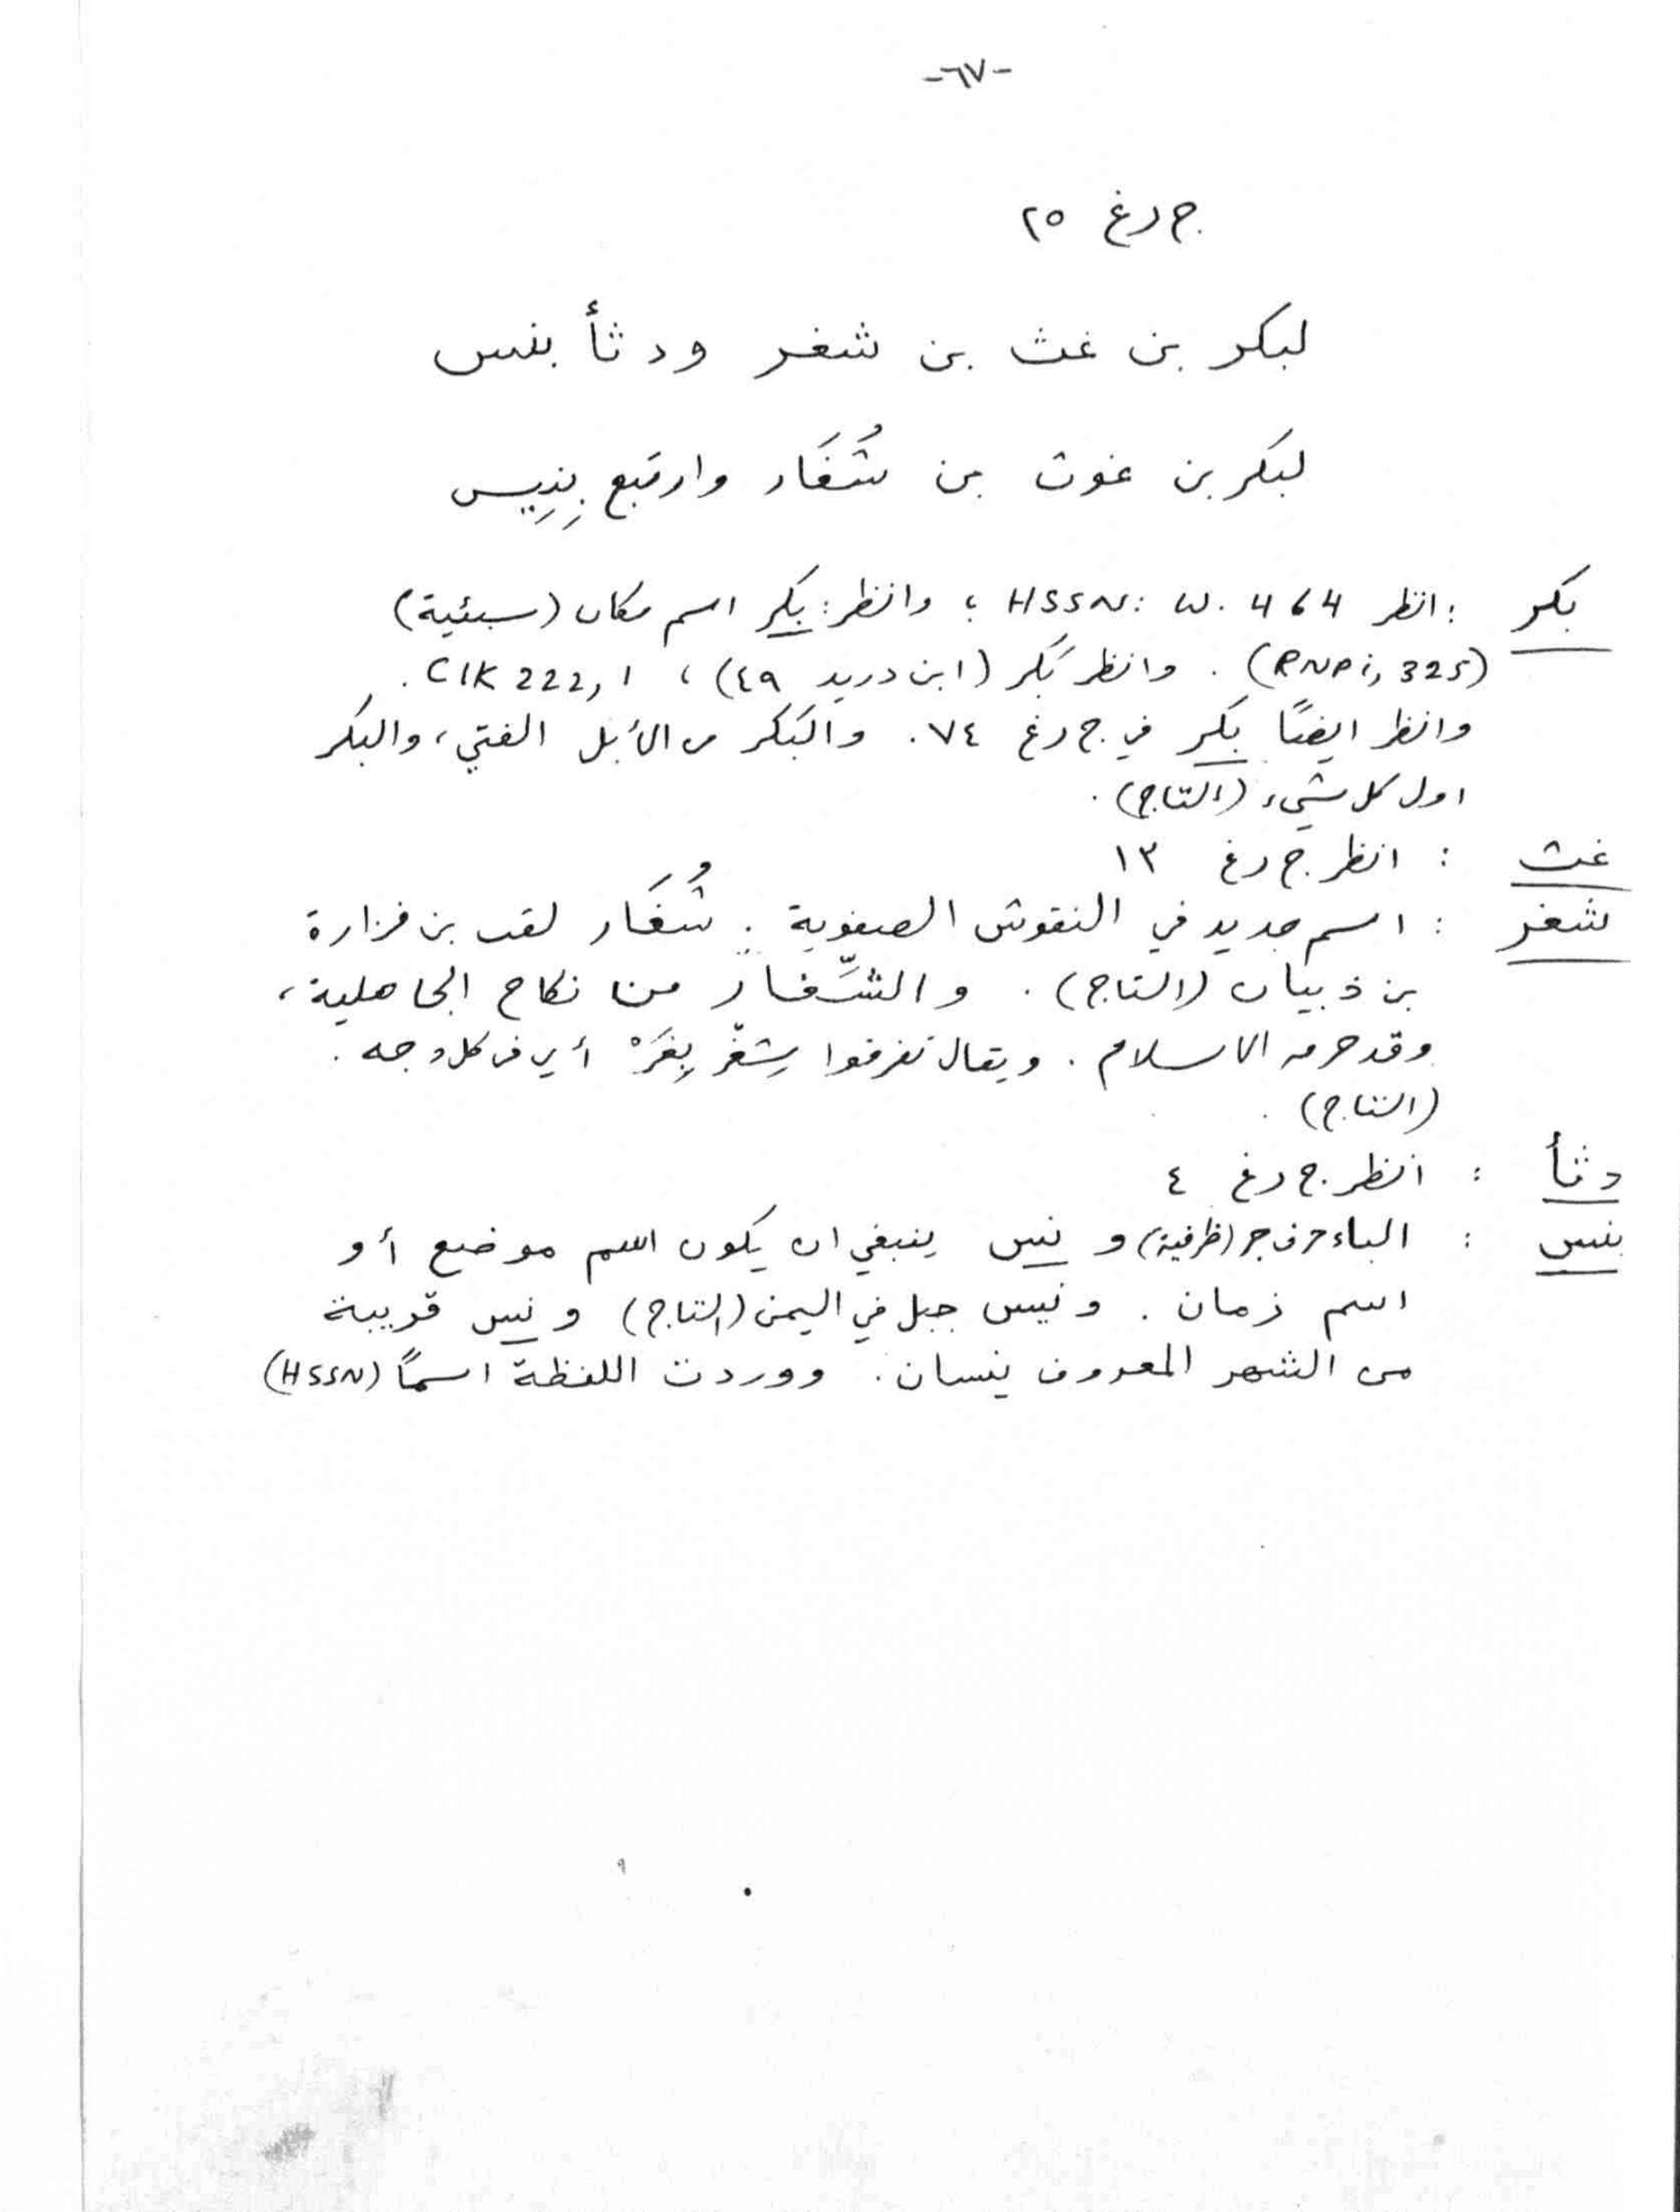 -٦٧-
ج رغ ٢٥
لبكر بن غث بن شغر ودثأ بنس
لبكر بن غوث بن شُغَار وارتبع بِنِيس
بكر : انظر HSSN: W. 464 ؛ وانظر: بكر اسم مكان (سبئية)
(RNPi, 325) . وانظر بَكر (ابن دريد ٤٩) ، CIK 222, ١ .
وانظر ايضًا بكر في ج رغ ٧٤. والبَكر من الأبل الفتي، والبِكر
اول كل شيء (التاج) .
غث : انظر ج رغ ١٣
شغر : اسم جديد في النقوش الصفوية . شُغَار لقب بن فزارة
بن ذبيان (التاج) . والشَّغار من نكاح الجاهلية،
وقد حرمه الاسلام . ويقال تفرقوا شِغْر بِغَرْ أي في كل وجه .
(التاج) .
دثأ : انظر ج رغ ٤
بنس : الباء حرف جر (ظرفية) و نس ينبغي ان يكون اسم موضع أو
اسم زمان . ونيس جبل في اليمن (التاج) و نس قريبة
من الشهر المعروف نيسان . ووردت اللفظة اسمًا (HSSN)